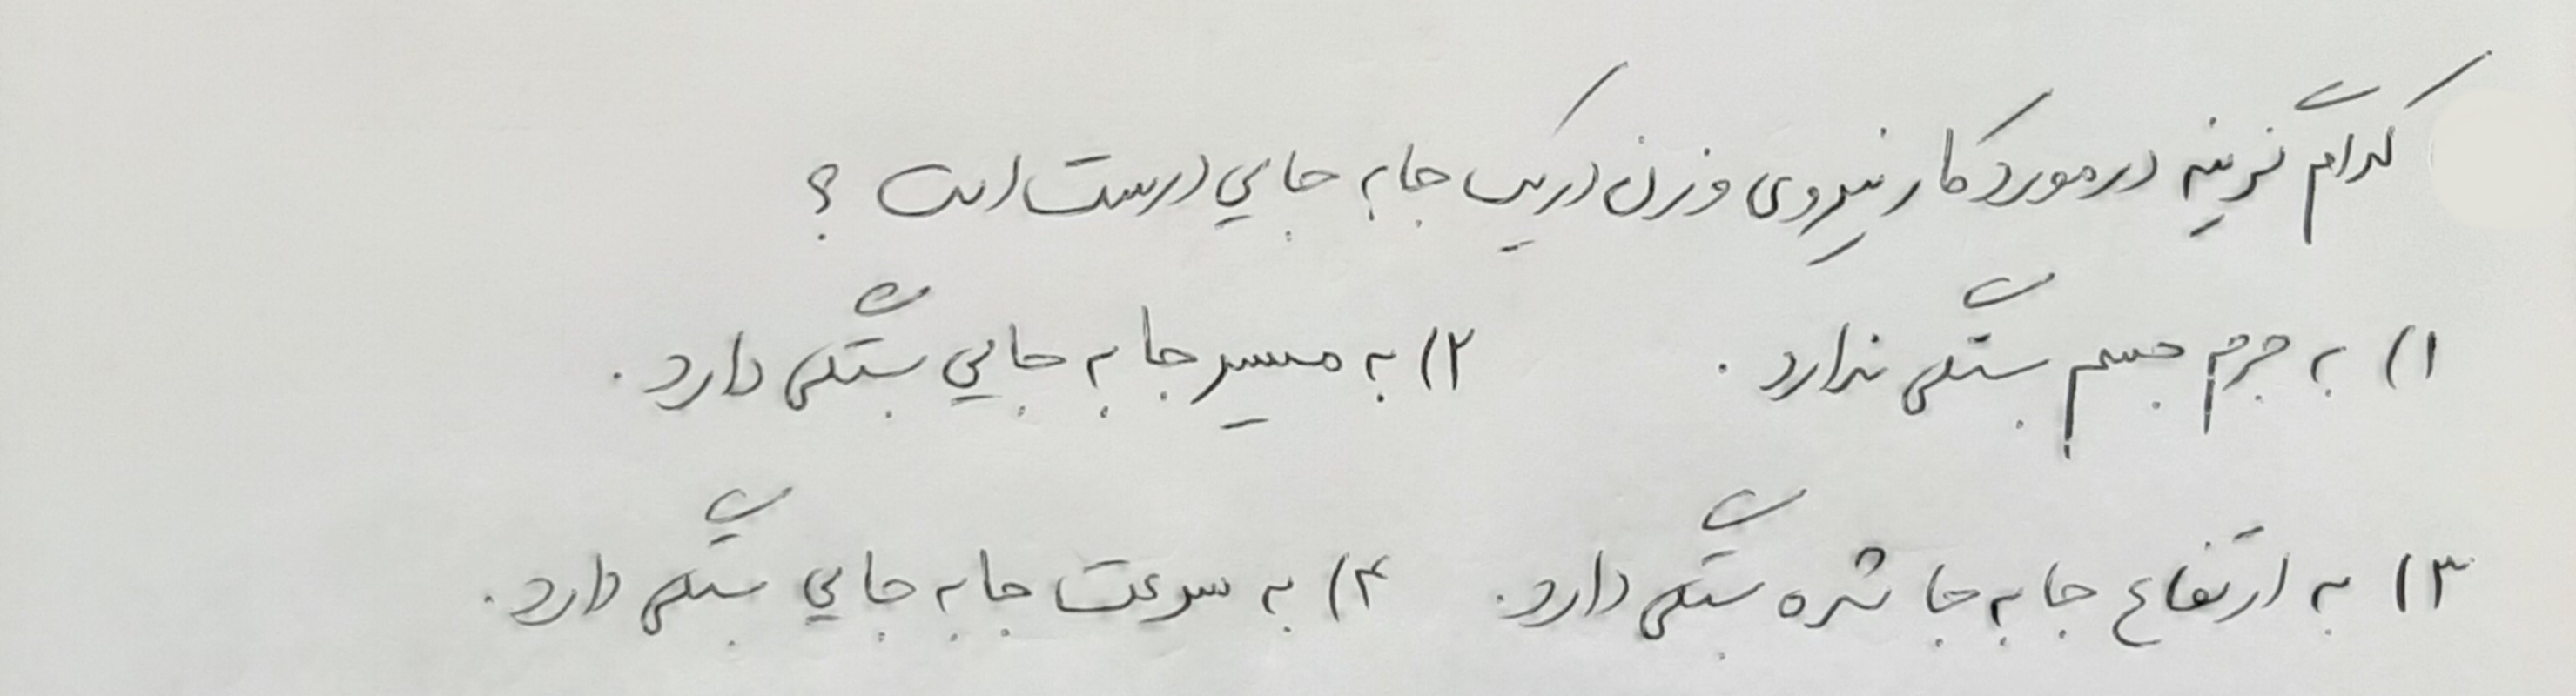 کدام گزینه در مورد کار نیروی وزن در یک جابه جایی درست است ؟
۱) به جرم جسم بستگی ندارد . ۲) به مسیر جابه جایی بستگی دارد .
۳) به ارتفاع جابه جا شده بستگی دارد . ۴) به سرعت جابه جایی بستگی دارد .